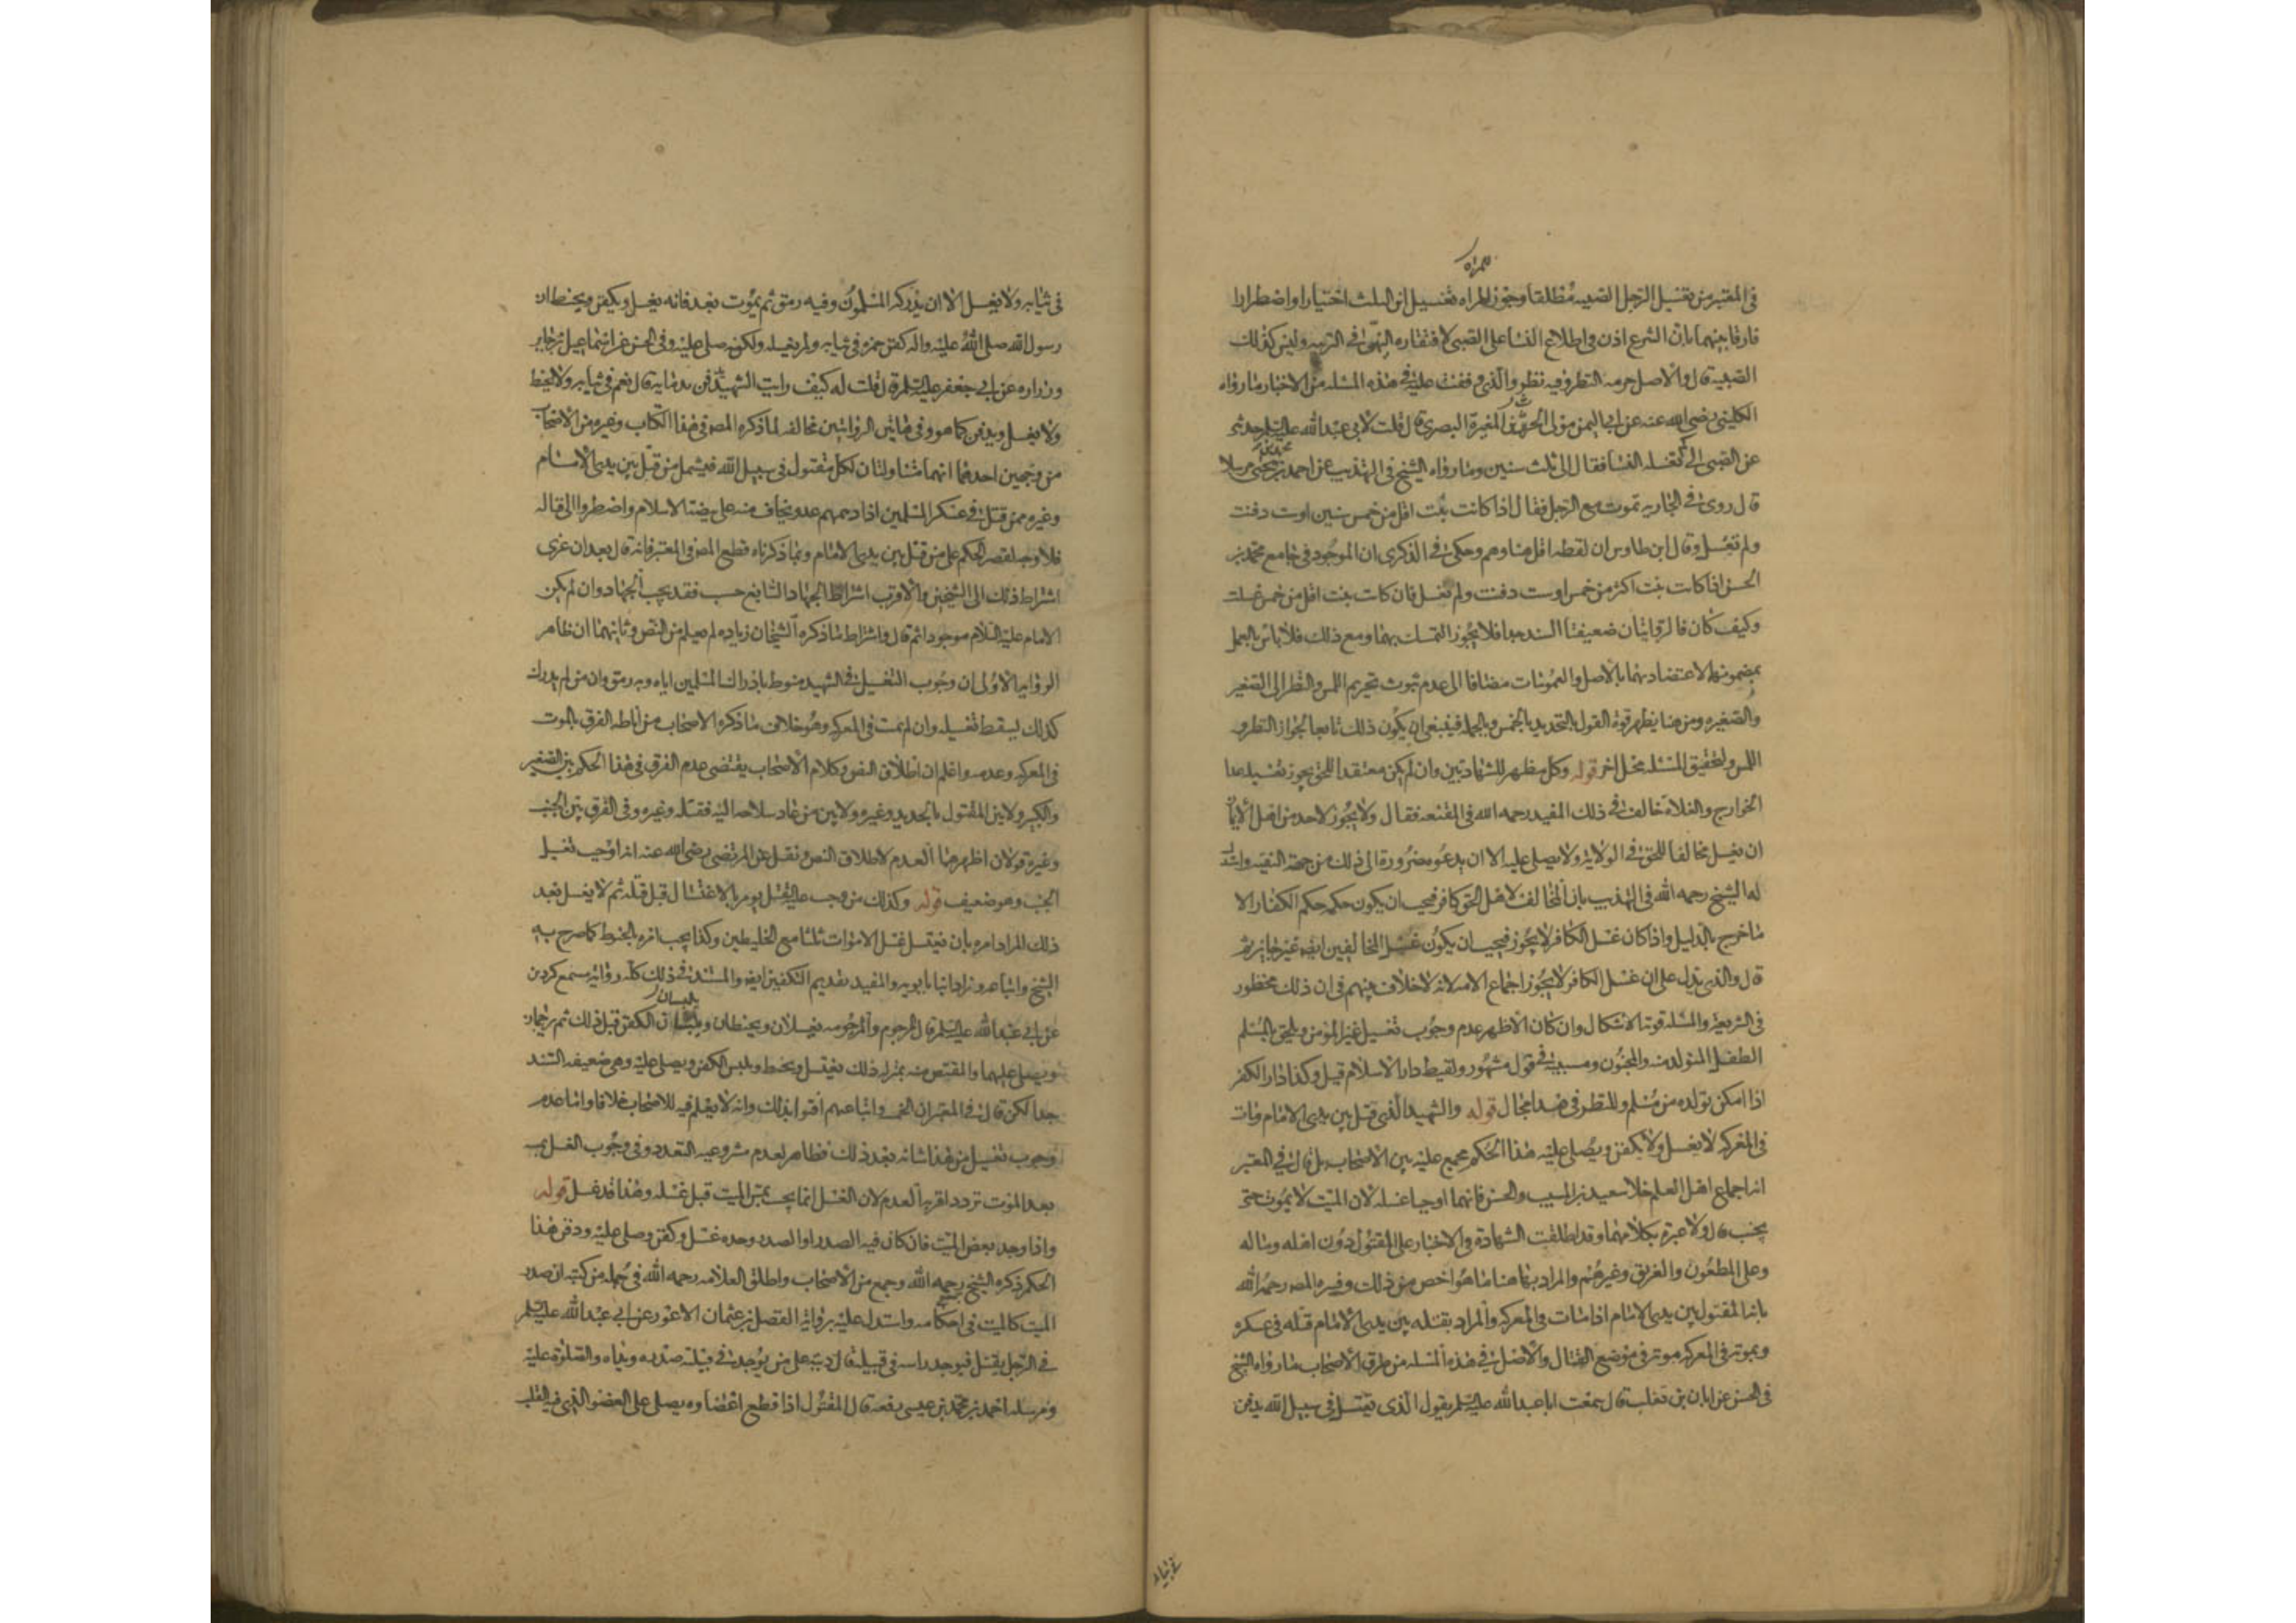 للمراه
في المعتبر من تغسيل الرجل الصبيه مطلقا وجوز للمراه تغسيل ابن الثلث اختيارا واضطرارا
فارقا بينهما بان الشرع اذن في اطلاع النسا على الصبي لافتقاره اليهن في التربيه وليس كذلك
الصبيه قال والاصل حرمه النظر وفيه نظر والذي وقفت عليه في هذه المسله من الاخبار ما رواه
الكليني رضي الله عنه عن ابي اليمن مولى الحرث بن المغيرة البصري قال قلت لابي عبد الله عليه السلم حدثني
عن الصبي الى كم تغسله النسا فقال الى ثلث سنين وما رواه الشيخ في التهذيب عن احمد بن يحيى مرسلا
محمد بن
قال روي في الجاريه تموت مع الرجل فقال اذا كانت بنت اقل من خمس سنين او ست دفنت
ولم تغسل وقال ابن طاوس ان لفظه اقل هنا وهم وحكى في الذكرى ان الموجود في جامع محمد بن
الحسن اذا كانت بنت اكثر من خمس او ست دفنت ولم تغسل فان كانت بنت اقل من خمس غسلت
وكيف كان فالروايتان ضعيفتا السند جدا فلا يجوز التمسك بهما ومع ذلك فلا باس بالعمل
بمضمونهما لاعتضادهما بالاصل والعمومات مضافا الى عدم ثبوت تحريم اللمس والنظر الى الصغير
والصغيره ومن هنا يظهر قوة القول بالتحديد بالخمس وبالجمله فينبغي ان يكون ذلك تابعا لجواز النظر و
اللمس ولتحقيق المسئله محل اخر قوله وكل مظهر للشهادتين وان لم يكن معتقدا للحق يجوز تغسيله عدا
الخوارج والغلاة خالف في ذلك المفيد رحمه الله في المقنعه فقال ولا يجوز لاحد من اهل الايمان
ان يغسل مخالفا للحق في الولاية ولا يصلي عليه الا ان يدعوه ضرورة الى ذلك من جهة التقيه واستدل
له الشيخ رحمه الله في التهذيب بان المخالف لاهل الحق كافر فيجب ان يكون حكمه حكم الكفار الا
ما خرج بالدليل واذا كان غسل الكافر لا يجوز فيجب ان يكون غسل المخالفين ايضا غير جايز ثم
قال والذي يدل على ان غسل الكافر لا يجوز اجماع الامه لانه لا خلاف بينهم في ان ذلك محظور
في الشريعة والمسله قوية الاشكال وان كان الاظهر عدم وجوب تغسيل غير المؤمن ويلحق بالمسلم
الطفل المتولد منه والمجنون ومسبيه في قول مشهور ولقيط دار الاسلام قيل وكذا دار الكفر
اذا امكن تولده من مسلم وللنظر في هذا مجال قوله والشهيد الذي قتل بين يدي الامام ومات
في المعركه لا يغسل ولا يكفن ويصلى عليه هذا الحكم مجمع عليه بين الاصحاب بل قال في المعتبر
انه اجماع اهل العلم خلا سعيد بن المسيب والحسن فانهما اوجبا غسله لان الميت لا يموت حتى
يجنب قال ولا عبرة بكلامهما وقد اطلقت الشهادة في الاخبار على المقتول دون اهله وماله
وعلى المطعون والغريق وغيرهم والمراد بها هنا ما هو اخص من ذلك وفسره المصر رحمه الله
بانه المقتول بين يدي الامام اذا مات في المعركه والمراد بقتله بين يدي الامام قتله في عسكره
وبموته في المعركه موته في موضع القتال والاصل في هذه المسله من طرق الاصحاب ما رواه الشيخ
في الحسن عن ابان بن تغلب قال سمعت ابا عبد الله عليه السلم يقول الذي يقتل في سبيل الله يدفن
في ثيابه
في ثيابه ولا يغسل الا ان يدركه المسلمون وفيه رمق ثم يموت بعد فانه يغسل ويكفن ويحنط ان
رسول الله صلى الله عليه واله كفن حمزه في ثيابه ولم يغسله ولكنه صلى عليه وفي الحسن عن اسماعيل بن جابر
وزراره عن ابي جعفر عليه السلم قال قلت له كيف رايت الشهيد يدفن بدمائه قال نعم في ثيابه ولا يحنط
ولا يغسل ويدفن كما هو وفي هاتين الروايتين مخالفه لما ذكره المصر في هذا الكتاب وغيره من الاصحاب
من وجهين احدهما انهما متناولتان لكل مقتول في سبيل الله فيشمل من قتل بين يدي الامام
وغيره ممن قتل في عسكر المسلمين اذا دهمهم عدو يخاف منه على بيضة الاسلام واضطروا الى قتاله
فلا وجه لقصر الحكم على من قتل بين يدي الامام وبما ذكرناه قطع المصر في المعتبر فانه قال بعد ان عزى
اشتراط ذلك الى الشيخين والاقرب اشتراط الجهاد السائغ حسب فقد يجب الجهاد وان لم يكن
الامام عليه السلام موجودا ثم قال واشتراط ما ذكره الشيخان زياده لم يعلم من النص وثانيهما ان ظاهر
الروايه الاولى ان وجوب التغسيل في الشهيد منوط بادراك المسلمين اياه وبه رمق وان من لم يدرك
كذلك يسقط تغسيله وان لم يمت في المعركه وهو خلاف ما ذكره الاصحاب من اناطه الفرق بالموت
في المعركه وعدمه واعلم ان اطلاق النص وكلام الاصحاب يقتضي عدم الفرق في هذا الحكم بين الصغير
والكبير ولا بين المقتول بالحديد وغيره ولا بين من عاد سلاحه اليه فقتله وغيره وفي الفرق بين الجنب
وغيره قولان اظهرهما العدم لاطلاق النص ونقل عن المرتضى رضي الله عنه انه اوجب تغسيل
الجنب وهو ضعيف قوله وكذلك من وجب عليه القتل يومر بالاغتسال قبل قتله ثم لا يغسل بعد
ذلك المراد امره بان يغتسل غسل الاموات ثلثا مع الخليطين وكذا يجب امره بالحنوط كما صرح به
الشيخ واتباعه وزاد ابنا بابويه والمفيد تقديم التكفين ايضا والمستند في ذلك كله روايه مسمع كردين
عن ابي عبد الله عليه السلم قال المرجوم والمرجومه يغسلان ويحنطان ويلبسان الكفن قبل ذلك ثم يرجمان
يلبسان
ويصلى عليهما والمقتص منه بمنزلة ذلك يغتسل ويحنط ويلبس الكفن ويصلى عليه وهي ضعيفه السند
جدا لكن قال في المعتبر ان الخمسه واتباعهم افتوا بذلك وانه لا يعلم فيه للاصحاب خلافا واما عدم
وجوب تغسيل من هذا شانه بعد ذلك فظاهر لعدم مشروعيه التعدد وفي وجوب الغسل بمسه
بعد الموت تردد اقربه العدم لان الغسل انما يجب بمس الميت قبل غسله وهذا قد غسل قوله
واذا وجد بعض الميت فان كان فيه الصدر او الصدر وحده غسل وكفن وصلي عليه ودفن هذا
الحكم ذكره الشيخ رحمه الله وجمع من الاصحاب واطلق العلامه رحمه الله في جمله من كتبه ان صدر
الميت كالميت في احكامه واستدل عليه برواية الفضل بن عثمان الاعور عن ابي عبد الله عليه السلم
في الرجل يقتل فيوجد راسه في قبيله قال ديته على من يوجد في قبيلته صدره ويداه والصلوة عليه
ومرسله احمد بن محمد بن عيسى رفعه قال المقتول اذا قطع اعضاوه يصلى على العضو الذي فيه القلب